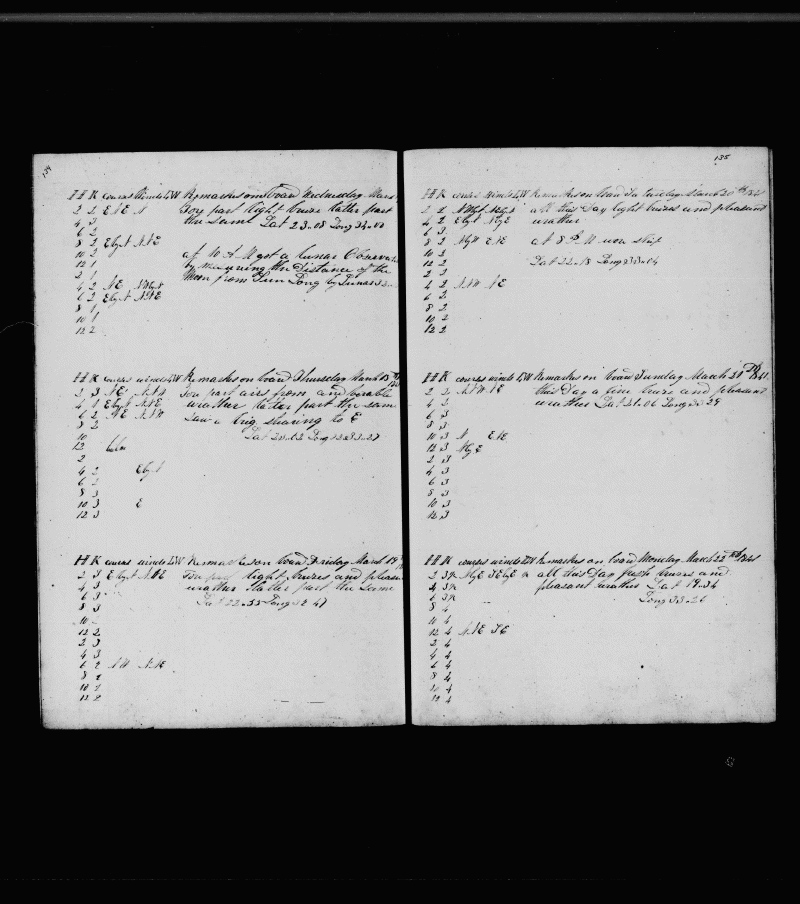 134
H K courses Winds LW Remarks on board Wednesday March
2 2 E N E N fore part light breeze latter part
4 3 the same Lat 23-08 Long 34-00
6 2
8 2 E by N N N E
10 2 at 10 A M got a lunar Observation
12 1 by measuring the Distance of the
2 1 Moon from Sun Long by Lunar
4 2 N E
6 2 E by N N N E
8 1
10 1
12 2
H K courses winds LW Remarks on board Thursday March 18th
2 3 N E N N W fore part airs from and variable
4 1 E by N N N E weather latter part the same
6 2 N E N N W Saw a brig steering to E
8 2
10 Lat 23-02 Long
12 calm
2
4 2 E by N
6 3
8 3
10 3 E
12 3
H K courses winds LW Remarks on board Friday March 19th
2 3 E by N N N E fore part light breezes and pleasant
4 3 weather latter part the same
6 3 Lat 22-55 Long 32 47
8 3
10 -
12 2
2 3
4 3
6 2 N W N N E
8 2
10 2
12 2
135
H K courses winds LW Remarks on board Saturday March 20th 1841
2 2 all this Day light breezes and pleasant
4 2 E by N N by E weather
6 3
8 2 N by W E N E at 8 P M wore ship
10 3
12 2 Lat 22-18 Long 33-04
2 3
4 2 N N W N E
6 2
8 2
10 2
12 2
H K courses winds LW Remarks on board Sunday March 21st 1841
2 2 N N W N E this Day a fine breeze and pleasant
4 3 weather Lat 21-06 Long 33 29
6 3
8 3
10 3 N E N E
12 3 N by E
2 3
4 3
6 3
8 3
10 3
12 3
H K courses winds LW Remarks on board Monday March 22nd 1841
2 3 N by E all this Day fresh breezes and
4 3 pleasant weather Lat 19-34
6 3 Long 33-26
8 4
10 4
12 4 N N E S E
2 4
4 4
6 4
8 4
10 4
12 4